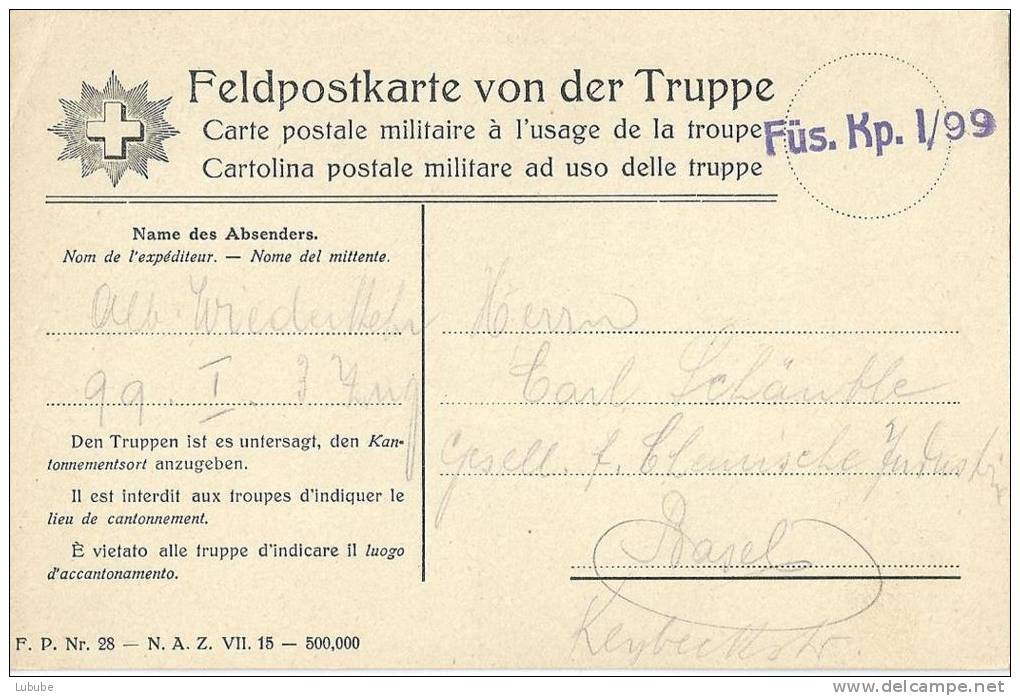 Feldpostkarte von der Truppe
Carte postale militaire à l'usage de la troupe
Cartolina postale militare ad uso delle truppe
Füs. Kp. I/99
Name des Absenders.
Nom de l'expéditeur. — Nome del mittente.
Alb. Wiederkehr
99. I. 3 Zug
Den Truppen ist es untersagt, den Kan-
tonnementsort anzugeben.
Il est interdit aux troupes d'indiquer le
lieu de cantonnement.
È vietato alle truppe d'indicare il luogo
d'accantonamento.
Herrn
Carl Schäuble
Gesell. f. Chemische Industrie
Basel
Klybeckstr.
F. P. Nr. 28 — N. A. Z. VII. 15 — 500,000
Lubube
www.delcampe.net